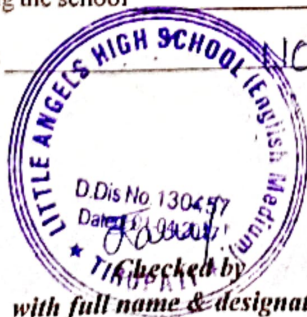 ing the school
NO
LITTLE ANGELS HIGH SCHOOL (English Medium)
D.Dis No. 130457
Dated
★ TIRUPATI ★
Checked by
with full name & designat